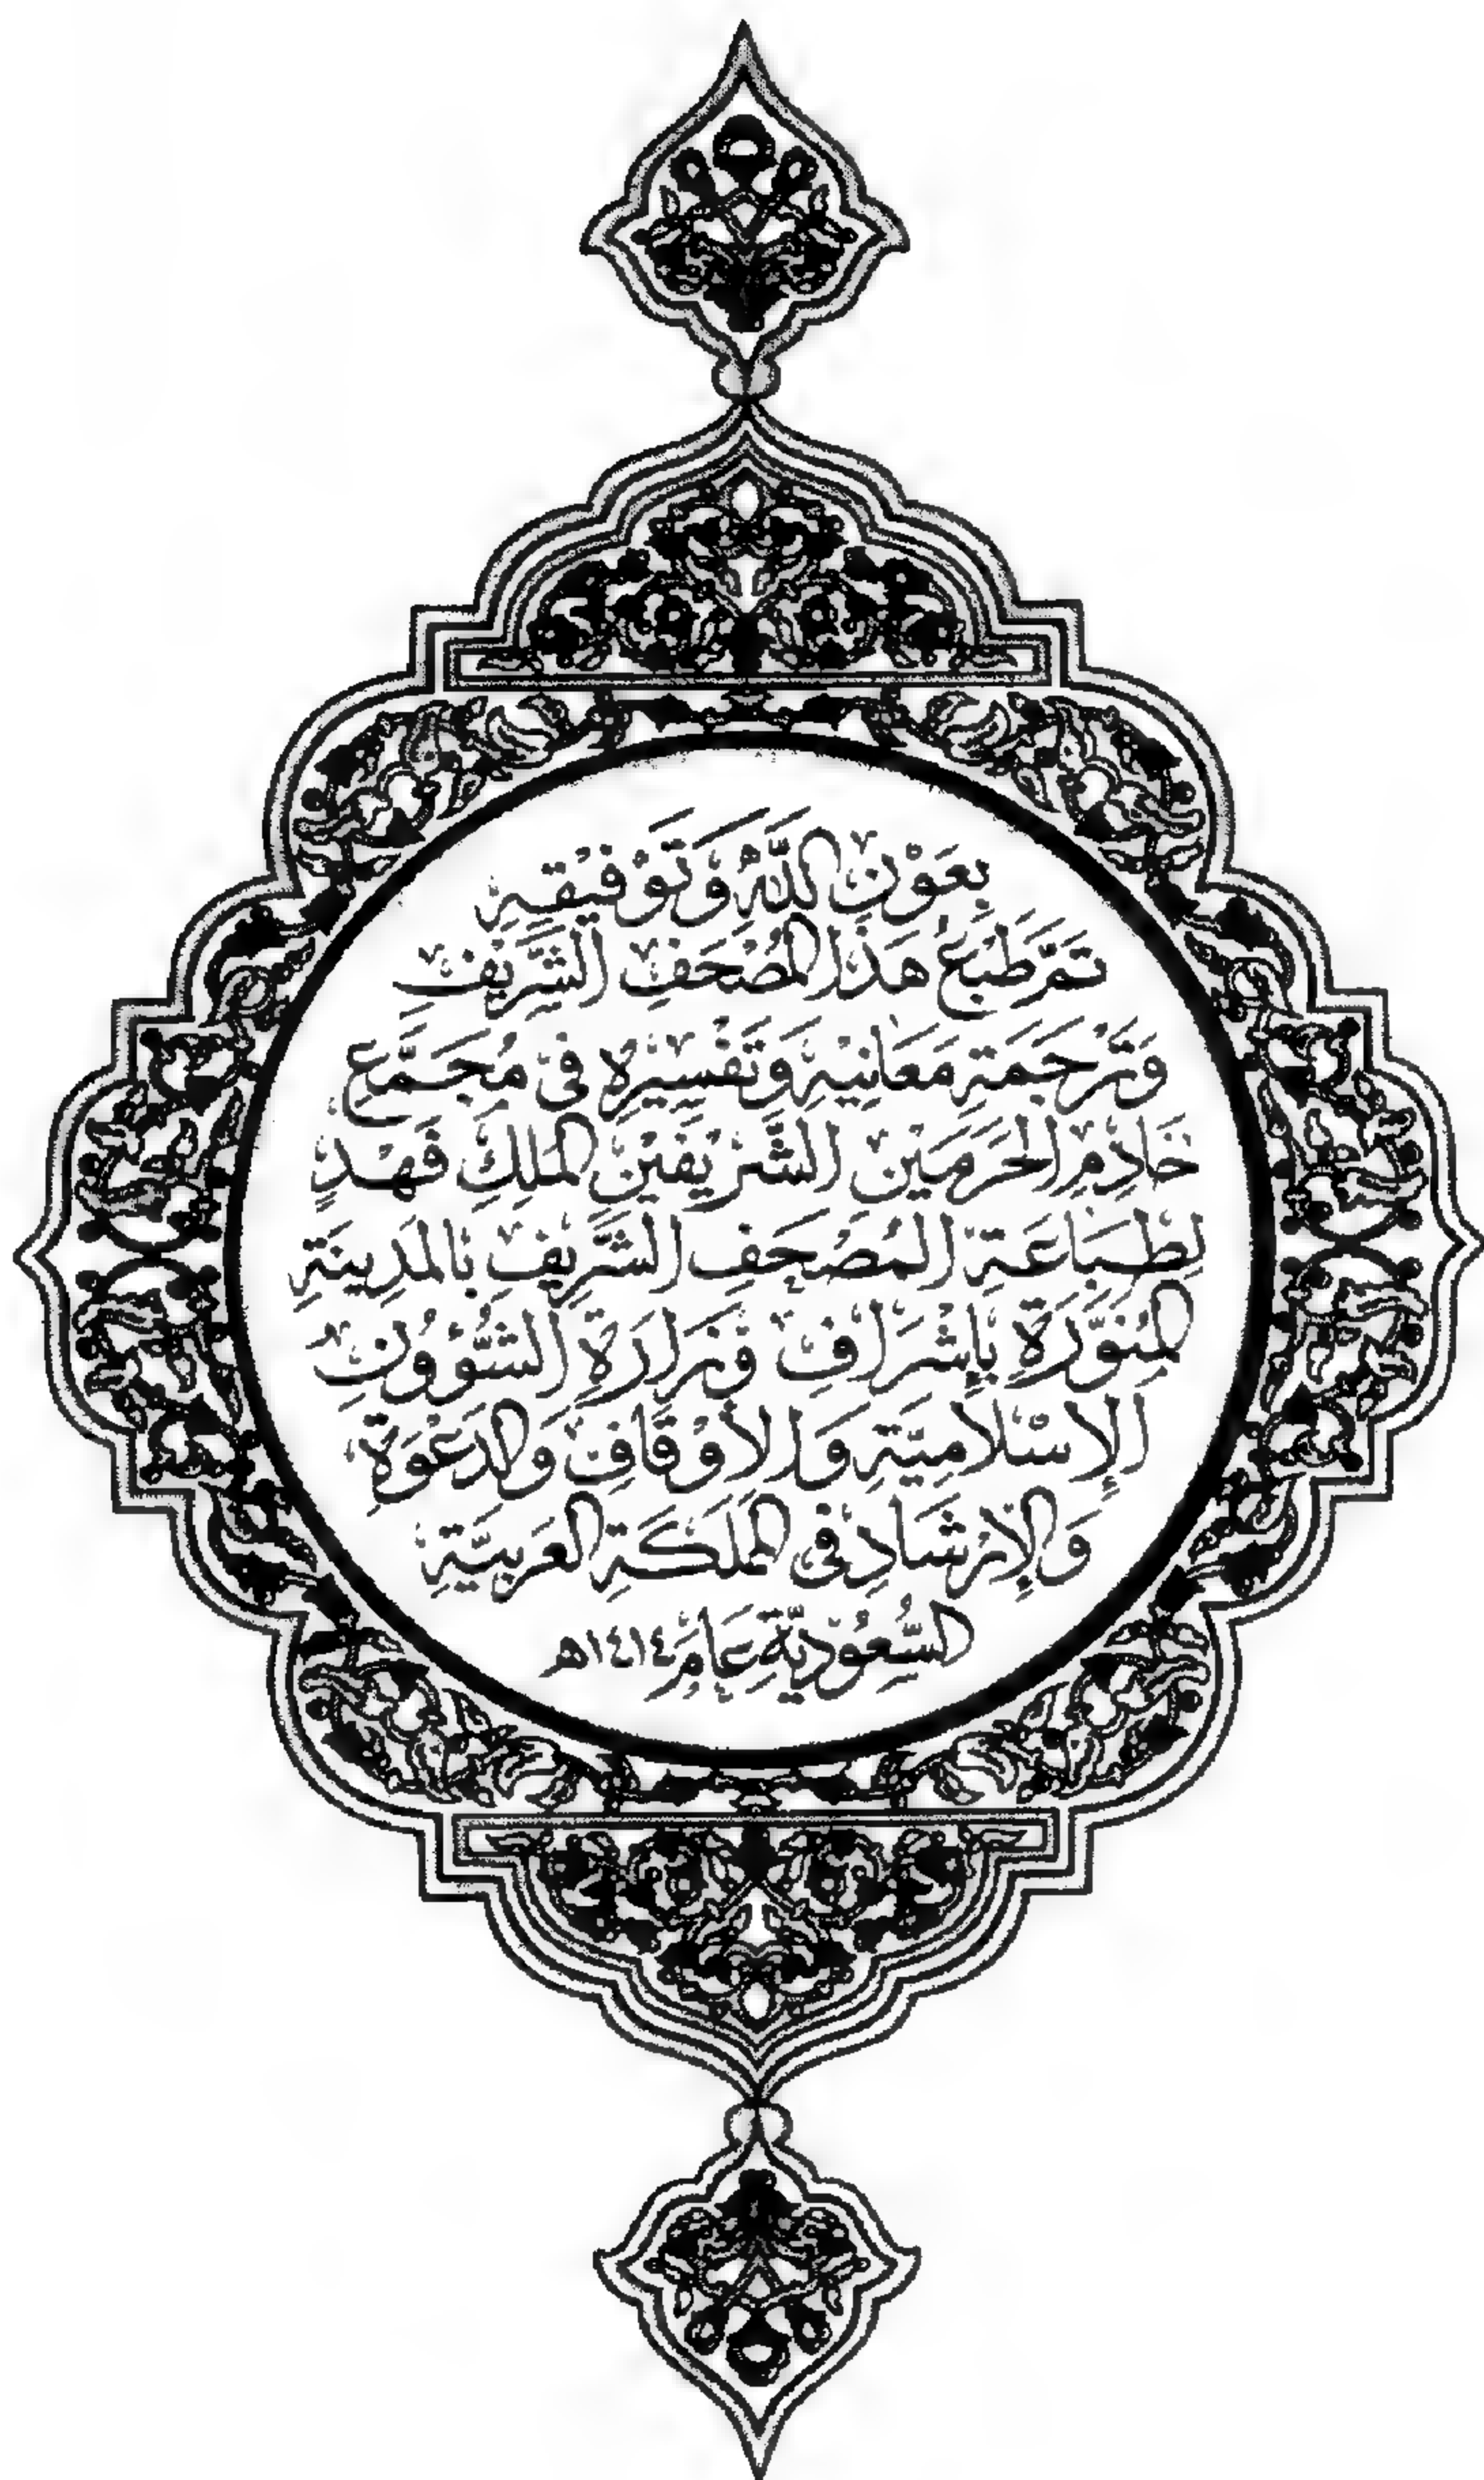 بِعَوْنِ اللَّهِ وَتَوْفِيْقِهِ
تَمَّ طَبْعُ هَذَا المُصْحَفِ الشَّرِيْفِ
وَتَرْجَمَةِ مَعَانِيْهِ وَتَفْسِيْرِهِ فِي مُجَمَّعِ
خَادِمِ الحَرَمَيْنِ الشَّرِيْفَيْنِ المَلِكِ فَهْدٍ
لِطِبَاعَةِ المُصْحَفِ الشَّرِيْفِ بِالمَدِينَةِ
المُنَوَّرَةِ بِإِشْرَافِ وَزَارَةِ الشُّؤُوْنِ
الإِسْلَامِيَّةِ وَالأَوْقَافِ وَالدَعْوَةِ
وَالإِرْشَادِ فِي المَمْلَكَةِ العَرَبِيَّةِ
السُّعُوْدِيَّةِ عَامَ ١٤١٤هـ